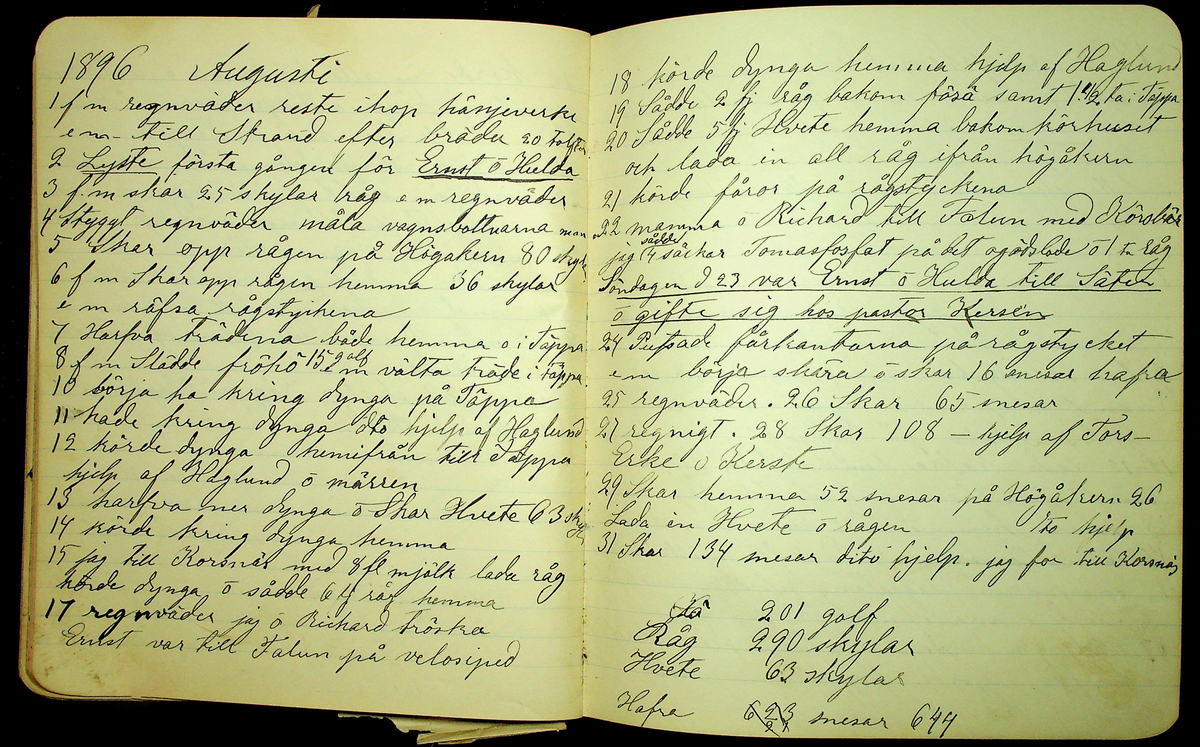 1896 Augusti
1 f m regnväder reste ihop hänjeverke
e m till Strand efter bräda 20 tolfter
2 Lyste första gången för Ernst o Hulda
3 f.m skar 25 skylar råg e m regnväder
4 Styggt regnväder måla vagnsbottnarna
5 Skar opp rågen på Högakern 80 skyl
6 f m Skar opp rågen hemma 36 skylar
e m räfsa rågstyckena
7 Harfva trädena både hemma o i Täppa
8 f m Slådde fröhö 15 golf e m välta träde i Täppa
10 börja ha kring dynga på Täppa
11 hade kring dynga dto hjelp af Haglund
12 körde dynga hemifrån till Täppa
hjelp af Haglund o märren
13 harfva ner dynga o Skar Hvete 63 sky
14 körde kring dynga hemma
15 jag till Korsnäs med 8 fl mjölk lada råg
körde dynga o sådde 6 råg hemma
17 regnväder jag o Richard tröska
Ernst var till Falun på velosiped
18 körde dynga hemma hjelp af Haglund
19 Sådde 2 fj råg bakom fösä samt 1 1/2 ta i Täppa
20 Sådde 5 fj Hvete hemma bakom körhuset
och lada in all råg ifrån högåkern
21 körde fåror på rågstyckena
22 mamma o Richard till Falun med Körsbär
jag sådde 4 säckar Tomasfosfat på det ogödslade o 1 tn råg
Söndagen d 23 var Ernst o Hulda till Säter
o gifte sig hos pastor Kersén
24 Putsade fårkantarna på rågstycket
e m börja skära o skar 16 snesar hafra
25 regnväder. 26 Skar 65 snesar
27 regnigt. 28 Skar 108 — hjelp af Tors-
Erke o Kerste
29 Skar hemma 52 snesar på Högåkern 26
Lada in Hvete o rågen to hjelp
31 Skar 134 snesar dito hjelp. jag for till Korsnäs
201 golf
Råg 290 skylar
Hvete 63 skylar
Hafra 623 snesar 644